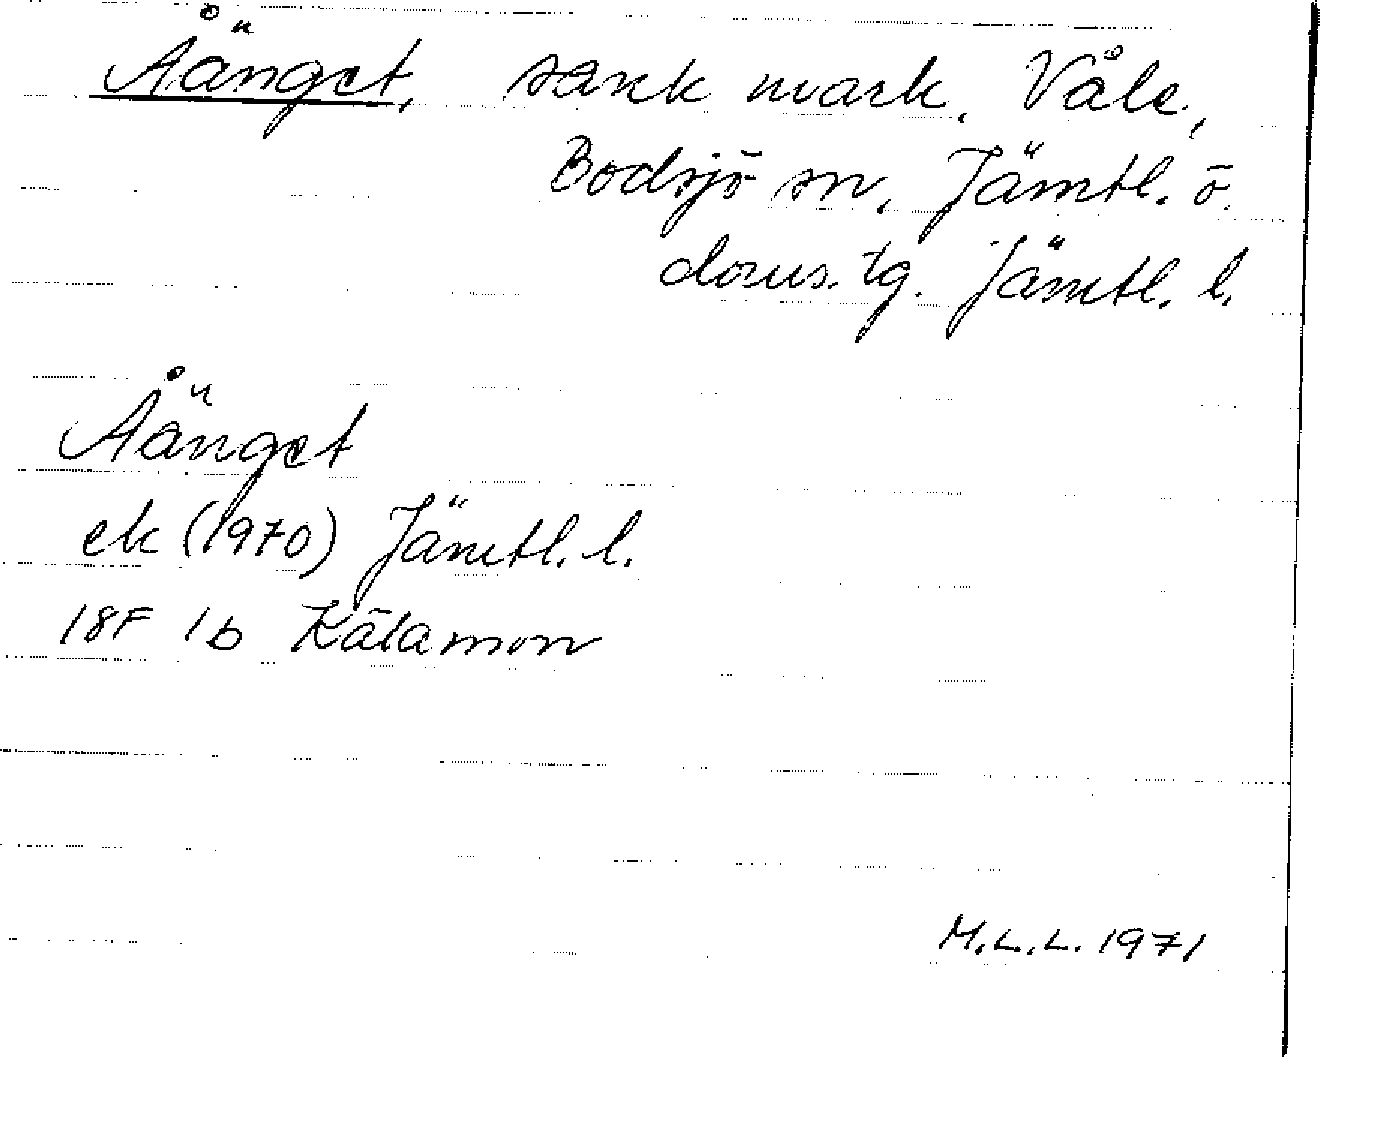 Åänget, sank mark, Våle,
Bodsjö sn, Jämtl. ö.
doms. tg. Jämtl. l.
Åänget
ek (1970) Jämtl. l.
18F 1b Kälamon
M.L.L. 1971